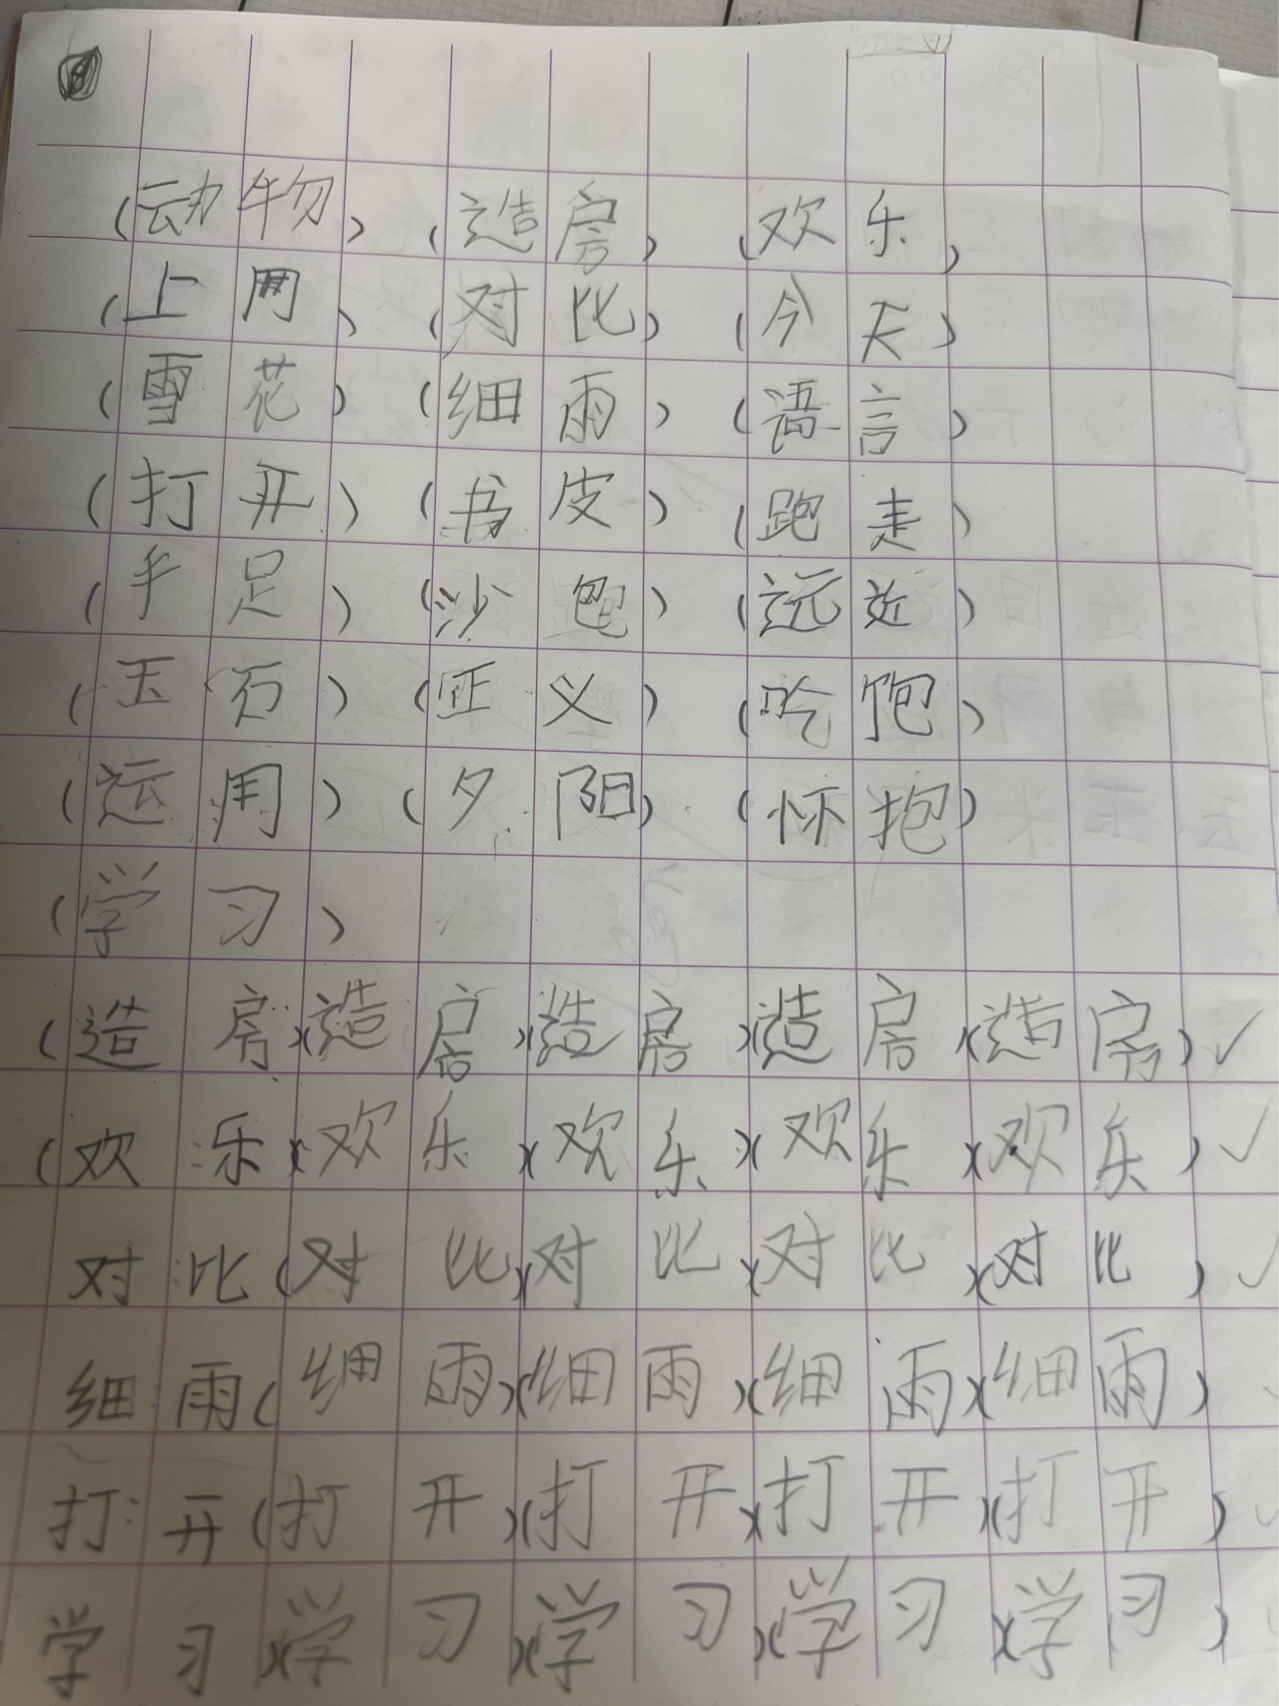 (动物)(造房)(欢乐)
(上网)(对比)(今天)
(雪花)(细雨)(语言)
(打开)(书皮)(跑走)
(手足)(沙包)(远近)
(玉石)(正义)(吃饱)
(运用)(夕阳)(怀抱)
(学习)
(造房)(造房)(造房)(造房)(造房)✓
(欢乐)(欢乐)(欢乐)(欢乐)(欢乐)✓
对比(对比)(对比)(对比)(对比)✓
细雨(细雨)(细雨)(细雨)(细雨)
打开(打开)(打开)(打开)(打开)
学习)(学习)(学习)(学习)(学习)